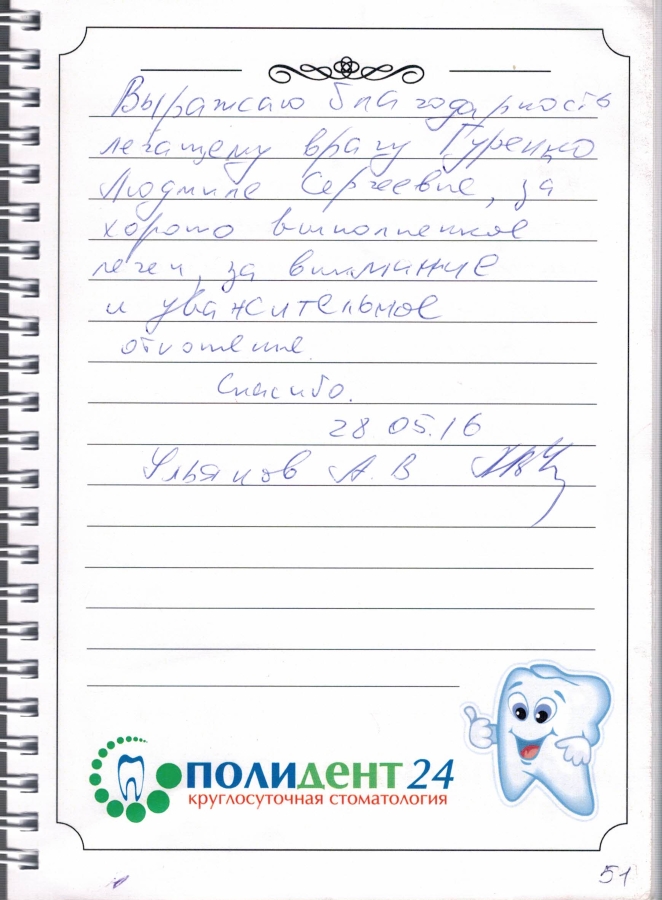 Выражаю благодарность
лечащему врачу Гуренко
Людмиле Сергеевне, за
хорошо выполненное
лечен, за внимание
и уважительное
отношение.
Спасибо.
28 05.16
Ульянов А. В
ПОЛИДЕНТ 24
круглосуточная стоматология
51